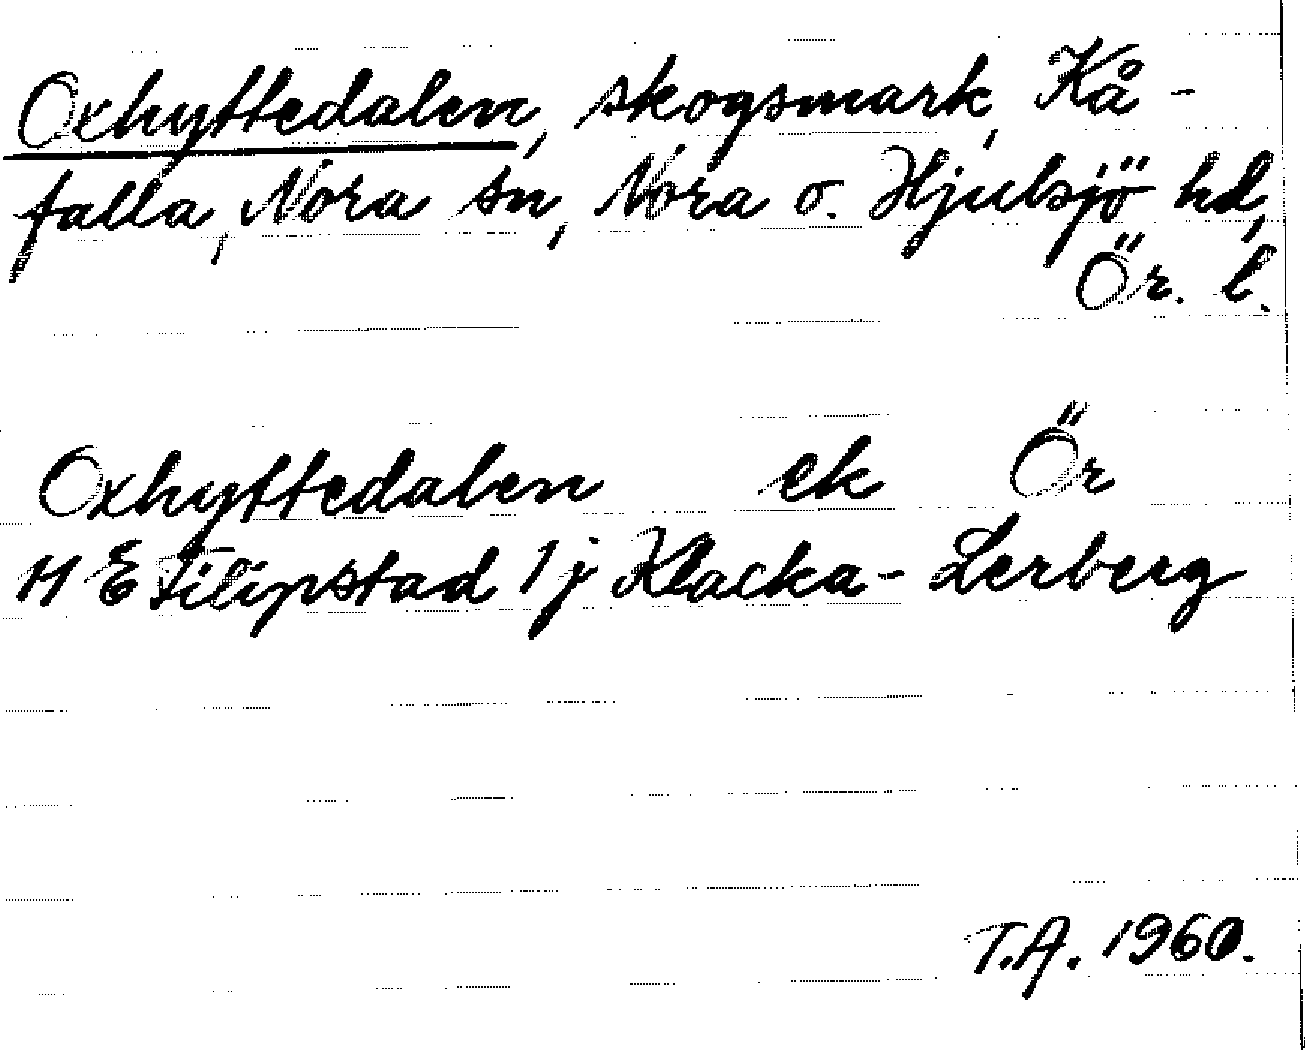 Oxhyttedalen, skogsmark, Kå-
falla, Nora sn, Nora o. Hjulsjö hd,
Ör. l.
Oxhyttedalen ek Ör
11 E Filipstad 1j Klacka-Lerberg
T.A. 1960.